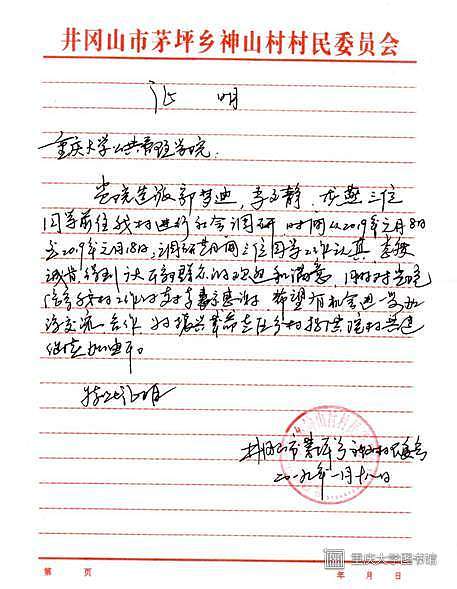 井冈山市茅坪乡神山村村民委员会
证 明
重庆大学公共管理学院:
贵院选派郭梦迪,李文静,三位
同学前往我村进行社会调研 时间从2019年元月8日
至2019年元月18日,调研期间三位同学工作认真 态度
诚肯 得到 群众的欢迎和满意 同时对贵院
我村的工作支持表示感谢 希望有机会进一步加
强交流 合作 为振兴革命老区乡村
继续加油。
特此证明
井冈山市茅坪乡神山村委会
二〇一九年一月十八日
重庆大学图书馆
第 页
年 月 日